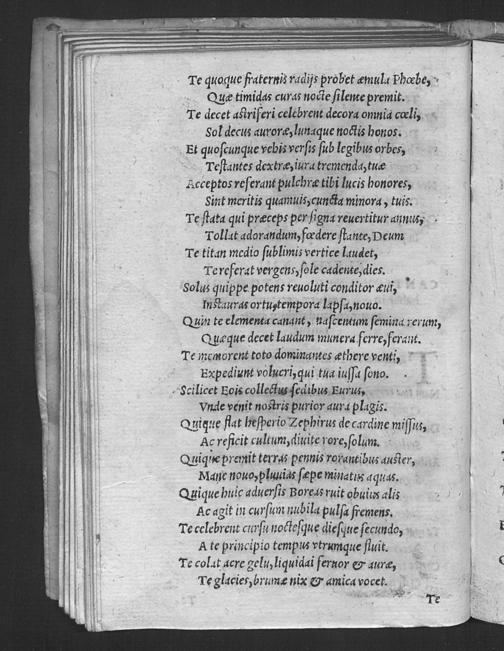 Te quoque fraternis radijs probet æmula Phœbe,
Quæ timidas curas nocte silente premit.
Te decet astriferi celebrent decora omnia cœli,
Sol decus auroræ, lunaque noctis honos.
Et quoscunque vehis versis sub legibus orbes,
Testantes dextræ, iura tremenda, tuæ
Acceptos referant pulchræ tibi lucis honores,
Sint meritis quamuis, cuncta minora, tuis.
Te stata qui præceps per signa reuertitur annus,
Tollat adorandum, fœdere stante, Deum
Te titan medio sublimis vertice laudet,
Te referat vergens, sole cadente, dies.
Solus quippe potens reuoluti conditor æui,
Instauras ortu, tempora lapsa, nouo.
Quin te elementa canant, nascentum semina rerum,
Quæque decet laudum munera ferre, ferant.
Te memorent toto dominantes æthere venti,
Expediunt volucri, qui tua iussa sono.
Scilicet Eois collectus sedibus Eurus,
Vnde venit nostris purior aura plagis.
Quique flat hesperio Zephirus de cardine missus,
Ac reficit cultum, diuite rore, solum.
Quique premit terras pennis rorantibus auster,
Mane nouo, pluuias sæpe minatus aquas.
Quique huic aduersis Boreas ruit obuius alis
Ac agit in cursum nubila pulsa fremens.
Te celebrent cursu noctesque diesque secundo,
A te principio tempus vtrumque fluit.
Te colat acre gelu, liquidai feruor & auræ,
Te glacies, brumæ nix & amica vocet.
Te